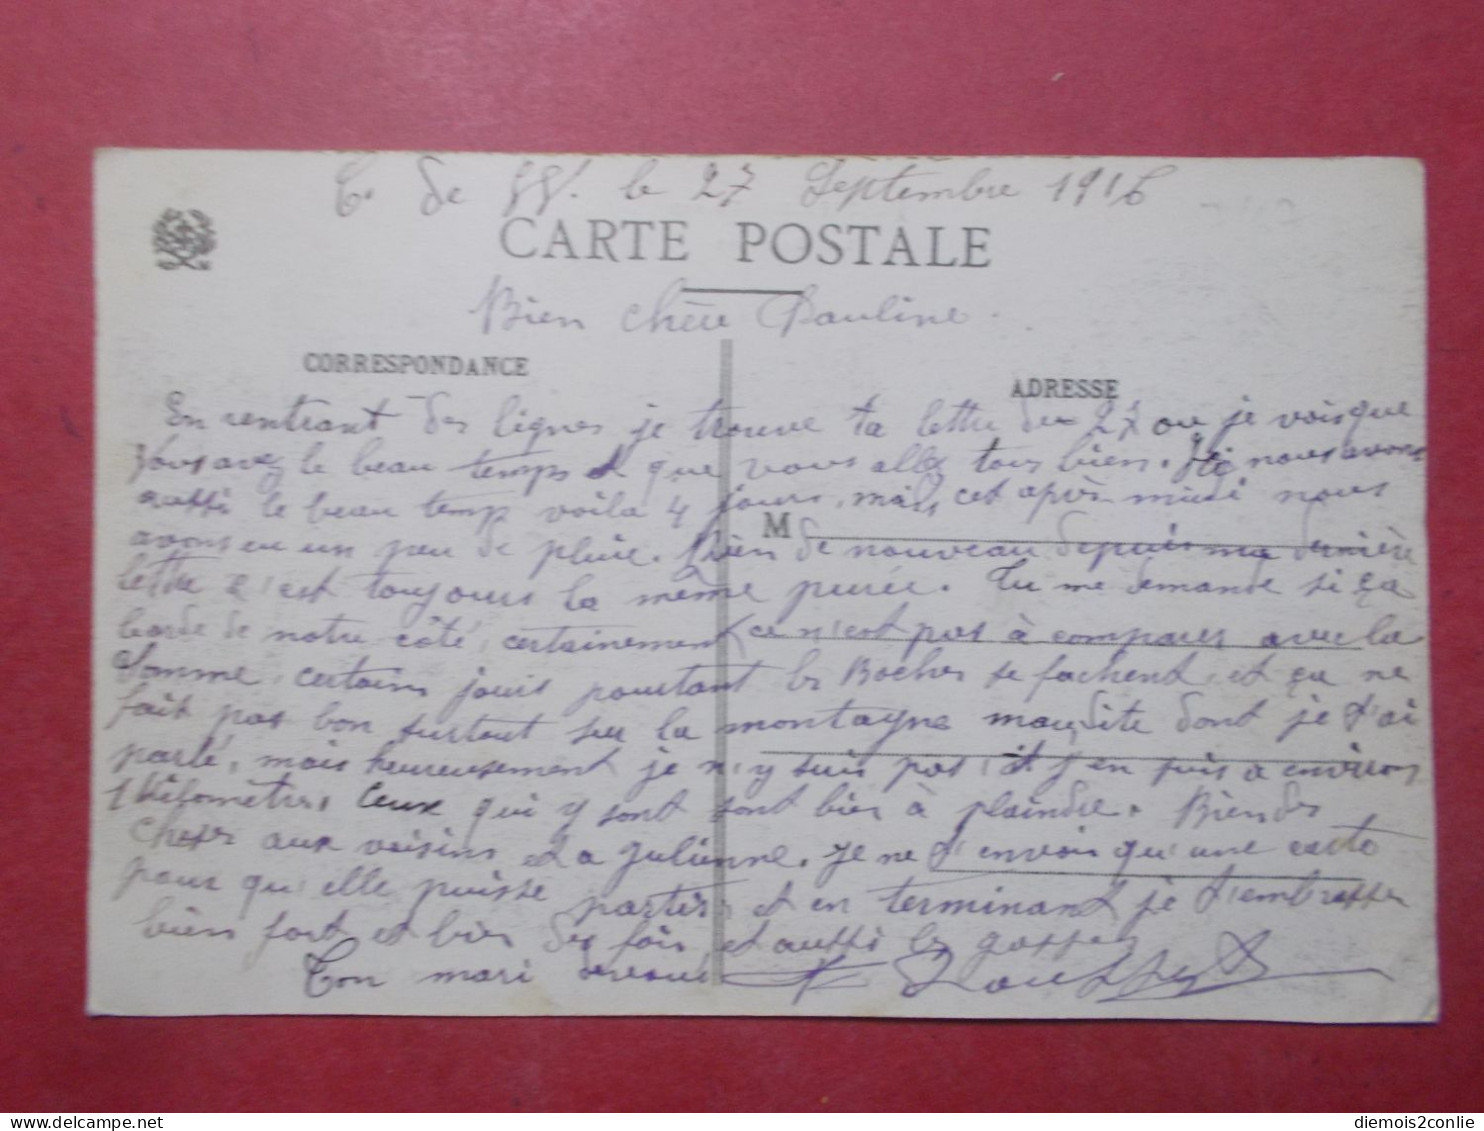 le 27 Septembre 1916
CARTE POSTALE
Bien chère Pauline.
CORRESPONDANCE
ADRESSE
En rentrant des lignes je trouve ta lettre du 27 ou je vois que
vous avez le beau temps et que vous allez tous bien. Ici nous avons
aussi le beau temp voila 4 jours, mais cet après-midi nous
M
avons eu un peu de pluie. Rien de nouveau depuis ma dernière
lettre c'est toujours la même purée. Tu me demande si ça
barde de notre côté, certainement ce n'est pas à comparer avec la
Somme, certains jours pourtant les Boches se fachent et ça ne
fait pas bon surtout sur la montagne maudite dont je t'ai
parlé, mais heureusement je n'y suis pas, et j'en suis a environ
1 kilomètre, Ceux qui y sont sont bien à plaindre. Bien des
choses aux voisins et a Julienne. Je ne t'envoie qu'une carte
pour qu'elle puisse partir et en terminant je t'embrasse
bien fort et bien des fois et aussi les gosses
Ton mari dévoué
diemois2conlie